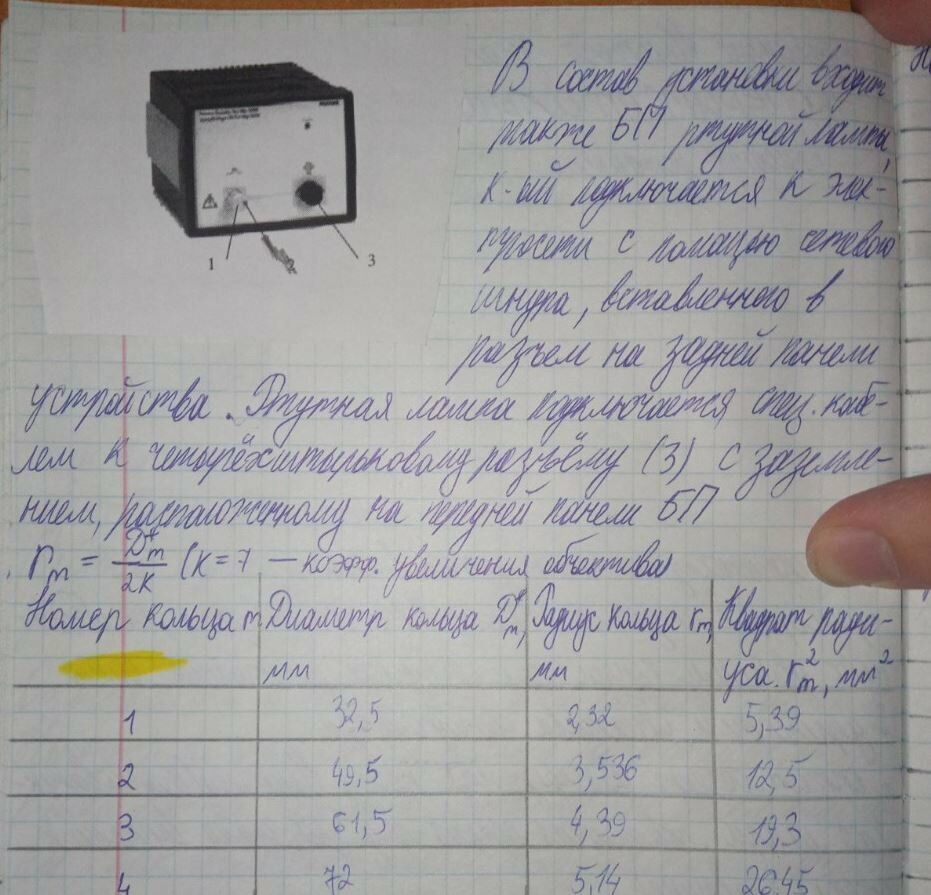 В состав установки входит
также БП ртутной лампы,
к-ый подключается к элек-
тросети с помощью сетевого
шнура, вставленного в
разъем на задней панели
1
3
устройства. Ртутная лампа подключается спец. кабе-
лем к четырёхштырьковому разъёму (3) с заземле-
нием, расположенному на передней панели БП
rₘ = D*ₘ/2K (K=7 — коэфф. увеличения объектива)
Номер кольца m Диаметр кольца D*ₘ, Радиус кольца rₘ, Квадрат ради-
мм мм уса. r²ₘ, мм²
1 32,5 2,32 5,39
2 49,5 3,536 12,5
3 61,5 4,39 19,3
4 72 5,14 26,45